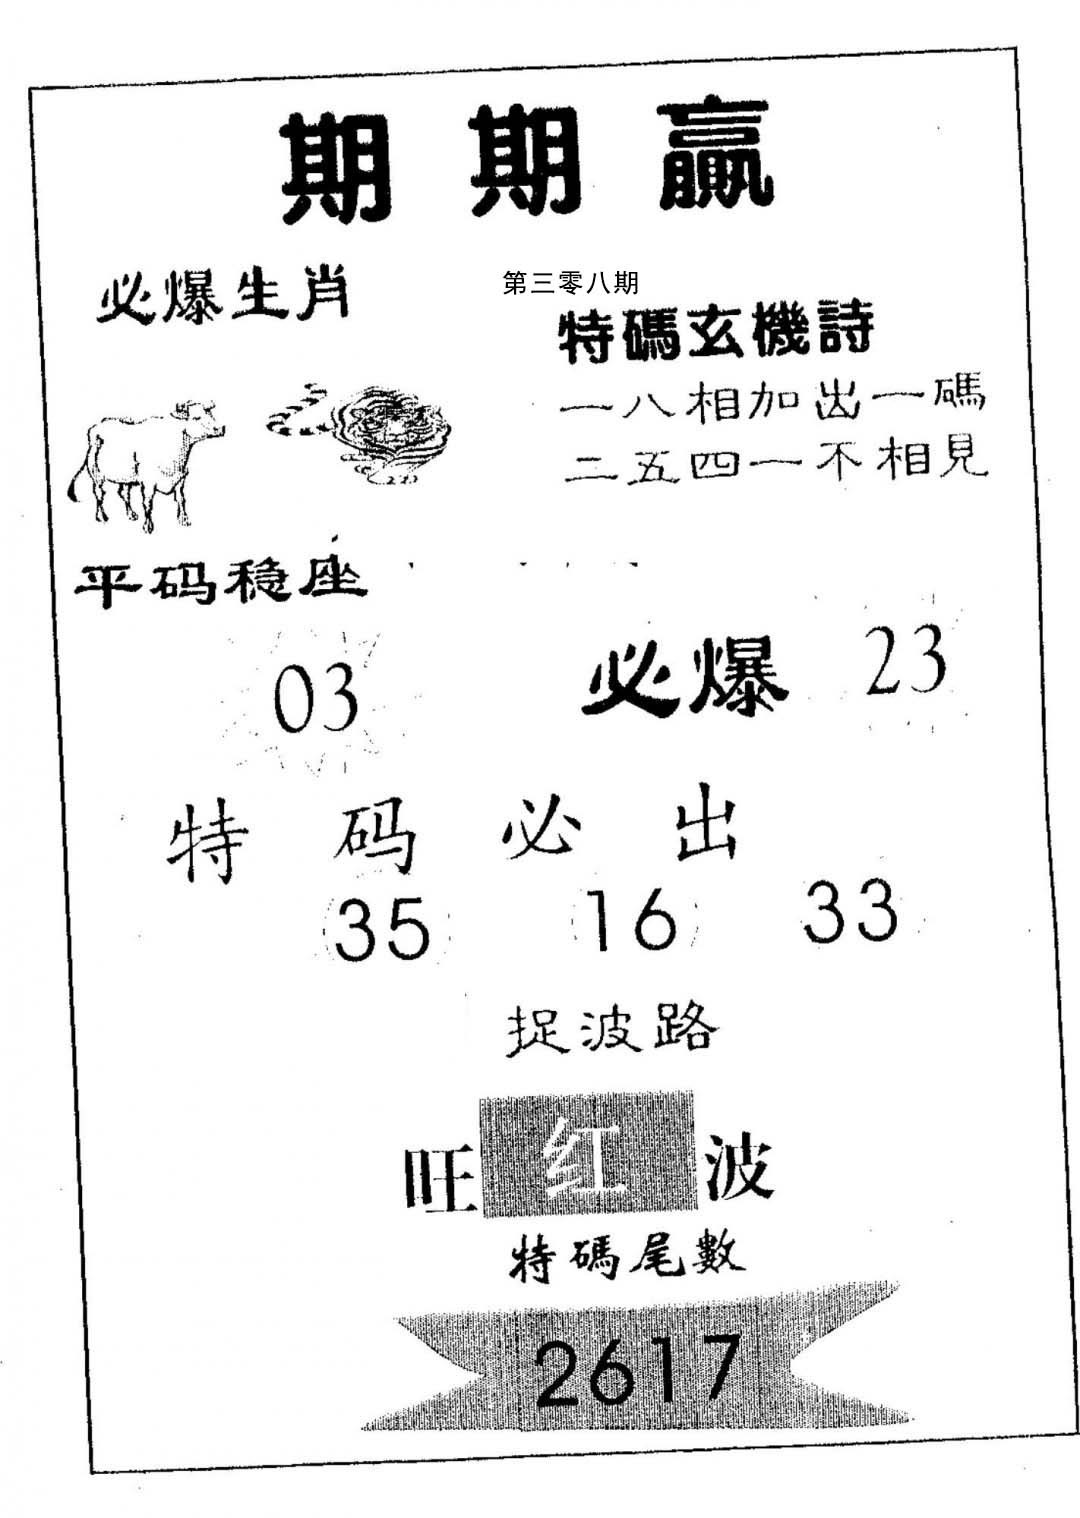 期期贏
第三零八期
必爆生肖
特碼玄機詩
一八相加出一碼
二五四一不相見
平码稳座
03
必爆 23
特码必出
35 16 33
捉波路
旺红波
特碼尾數
2617